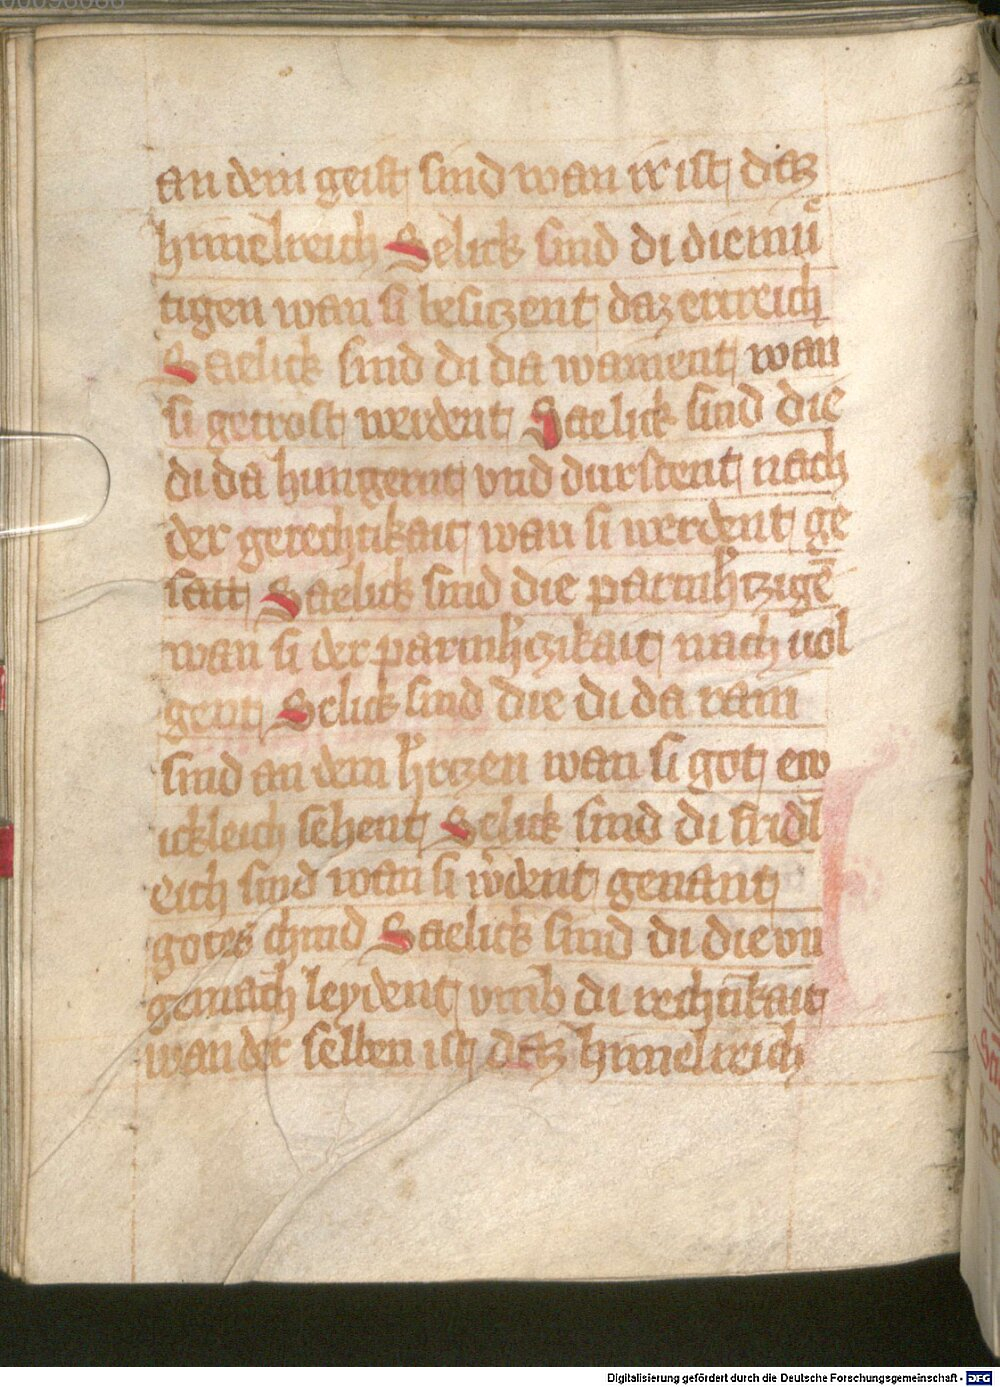 an dem geist sind wan ir ist daz
himelreich Selick sind di diemuͤ
tigen wan si besiczent daz ertreich
Saelick sind di da wainent wan
si getrost werdent Saelick sind die
di da hungernt vnd durstent nach
der gerechtikait wan si werdent ge
satt Saelick sind die parmh̾tzigē
wan si der parmh̾czikait nach uol
gent Selick sind die di da rain
sind an dem h̾rczen wan si got ew
ickleich sehent Selick sind di fridl
eich sind wan si w̾dent genant
gotes chind Saelick sind di die vn
gemach leydent vmb di rechtikait
wan der selben ist daz himelreich
Digitalisierung gefördert durch die Deutsche Forschungsgemeinschaft - DFG